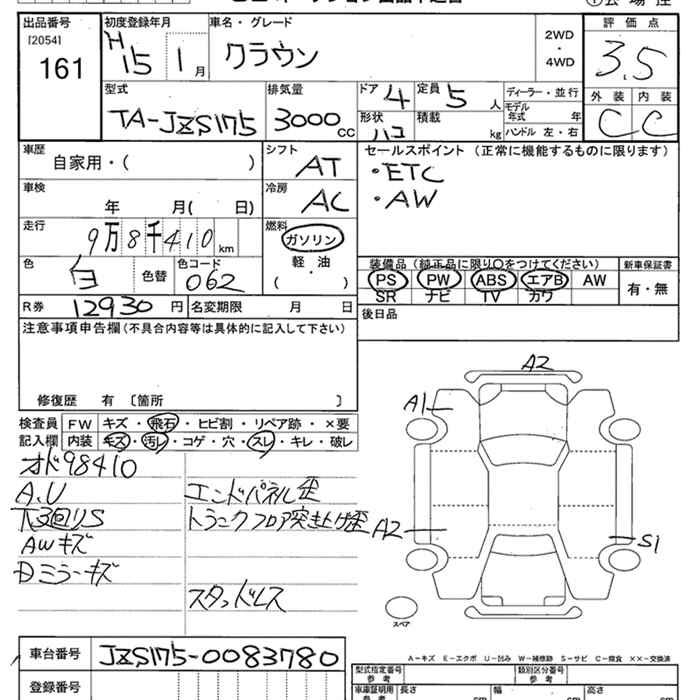 出品番号
[2054]
161
初度登録年月
H15 1月
車名・グレード
クラウン
2WD
・
4WD
評価点
3.5
外装 内装
C C
型式
TA-JZS175
排気量
3000 CC
ドア 4
定員 5 人
形状 ハコ
積載 kg
ディーラー・並行
モデル年式 年
ハンドル 左・右
車歴
自家用・( )
シフト
AT
セールスポイント (正常に機能するものに限ります)
・ETC
・AW
車検
年 月( 日)
冷房
AC
走行
9万8千410km
燃料
ガソリン
軽・油
・
( )
色
白
色替
色コード
062
装備品 (純正品に限り○をつけてください)
PS PW ABS エアB AW
SR ナビ TV カワ
新車保証書
有・無
R券 12930 円
名変期限 月 日
後日品
注意事項申告欄(不具合内容等は具体的に記入して下さい)
修復歴 有 〔箇所 〕
検査員記入欄
FW キズ・飛石・ヒビ割・リペア跡・×要
内装 キズ・汚レ・コゲ・穴・スレ・キレ・破レ
オド98410
A,U
下廻りS
エンドパネル歪
トランクフロア突き上げ歪
AWキズ
Dミラーキズ
スタッドレス
A2
A1
A2
S1
スペア
A-キズ E-エクボ U-凹み W-補修跡 S-サビ C-腐食 ××-交換済
車台番号 JZS175-0083780
登録番号
型式指定番号
参考
類別区分番号
参考
車庫証明用
参考
長さ cm
幅 cm
高さ cm